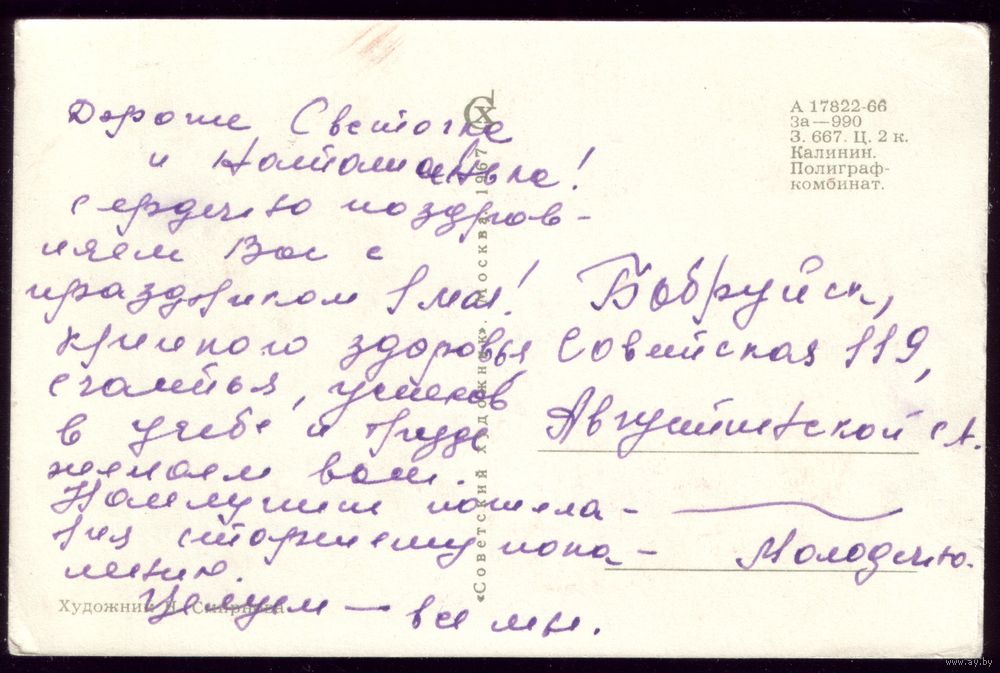 Дорогие Светочка
и Наташенька!
сердечно поздрав-
ляем Вас с
праздником 1 мая!
крепкого здоровья,
счастья, успехов
в учебе и труде
желаем вам.
Наилучшие пожела-
ния старшему поко-
лению.
Целуем — все мы.
Бобруйск,
Советская 119,
Августинской
Молодечно.
А 17822-66
За—990
З. 667. Ц. 2 к.
Калинин.
Полиграф-
комбинат.
«Советский Художник». Москва. 1967
Художник Н. Смирнова
www.ay.by